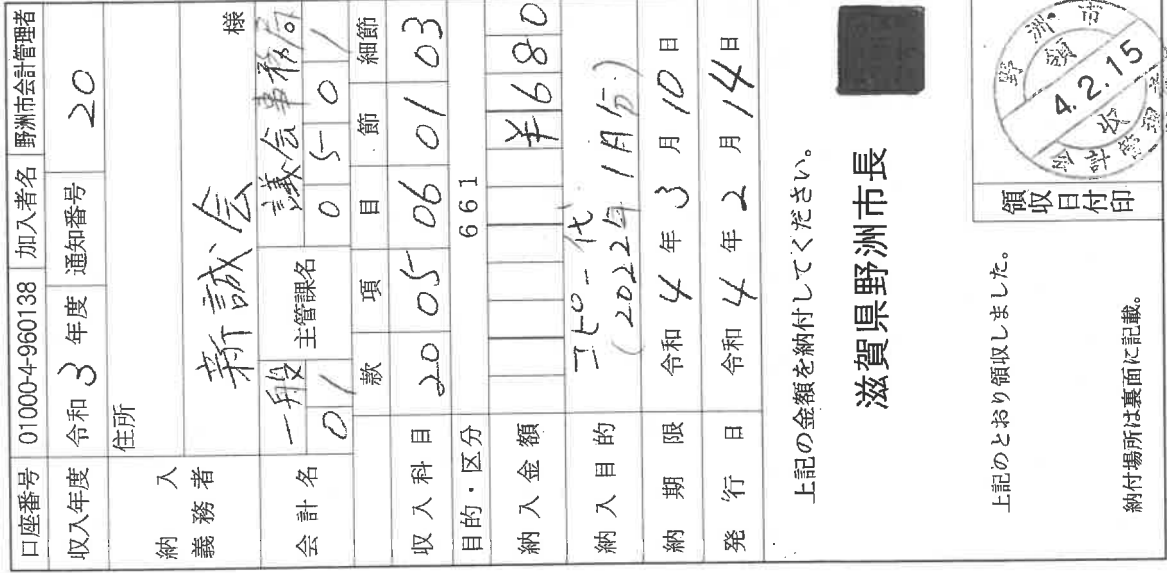 口座番号 01000-4-960138 加入者名 野洲市会計管理者
収入年度 令和 3 年度 通知番号 20
納入義務者 住所
新誠会 様
会計名 一般 主管課名 議会事務局
01 0 5 0 1
収入科目 款 項 目 節 細節
20 05 06 01 03
目的・区分 661
納入金額 ¥680
納入目的 コピー代
(2022年1月分)
納期限 令和 4 年 3 月 10 日
発行日 令和 4 年 2 月 14 日
上記の金額を納付してください。
滋賀県野洲市長
上記のとおり領収しました。
納付場所は裏面に記載。
領収日付印
野洲市
領
4.2.15
収
会計管理者